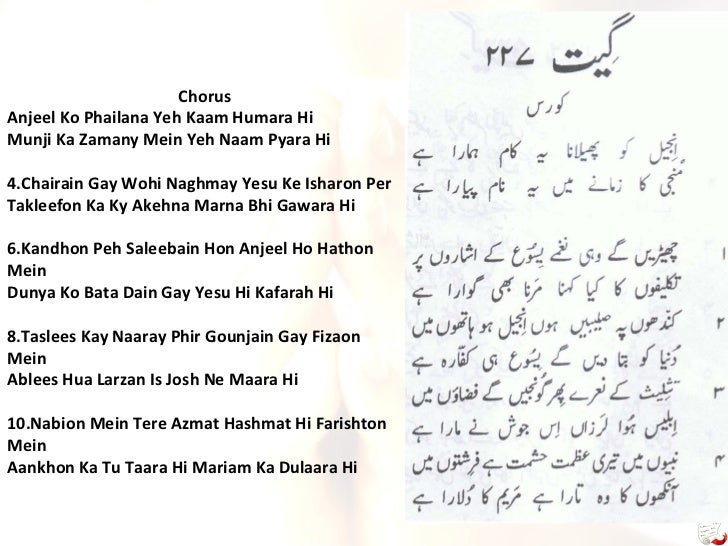 Chorus
Anjeel Ko Phailana Yeh Kaam Humara Hi
Munji Ka Zamany Mein Yeh Naam Pyara Hi
4.Chairain Gay Wohi Naghmay Yesu Ke Isharon Per
Takleefon Ka Ky Akehna Marna Bhi Gawara Hi
6.Kandhon Peh Saleebain Hon Anjeel Ho Hathon
Mein
Dunya Ko Bata Dain Gay Yesu Hi Kafarah Hi
8.Taslees Kay Naaray Phir Gounjain Gay Fizaon
Mein
Ablees Hua Larzan Is Josh Ne Maara Hi
10.Nabion Mein Tere Azmat Hashmat Hi Farishton
Mein
Aankhon Ka Tu Taara Hi Mariam Ka Dulaara Hi
گیت ۲۲۷
کورس
اِنجیل کو پھیلانا یہ کام ہمارا ہے
مُنجّی کا زمانے میں یہ نام پیارا ہے
۱ چھیڑیں گے وہی نغمے یِسُوع کے اشاروں پر
تکلیفوں کا کیا کہنا مَرنا بھی گوارا ہے
۲ کندھوں پہ صلیبیں ہوں اِنجیل ہو ہاتھوں میں
دُنیا کو بتا دیں گے یِسُوع ہی کفّارہ ہے
۳ تثلِیث کے نعرے پِھر گونجیں گے فضاؤں میں
اِبلیس ہُوا لَرزاں اِس جوش نے مارا ہے
۴ نبیوں میں تیری عظمت حشمت ہے فرِشتوں میں
آنکھوں کا وہ تارا ہے مریم کا دُلارا ہے